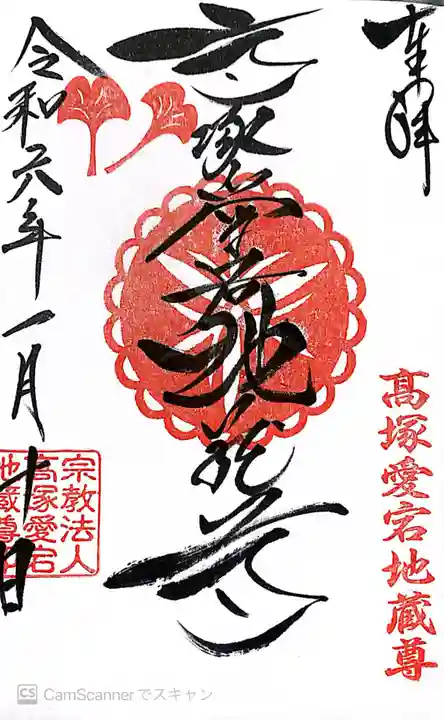 奉拝
髙塚愛宕地蔵尊
髙塚愛宕地蔵尊
令和六年一月十日
宗教法人
髙塚愛宕
地蔵尊
CS CamScannerでスキャン